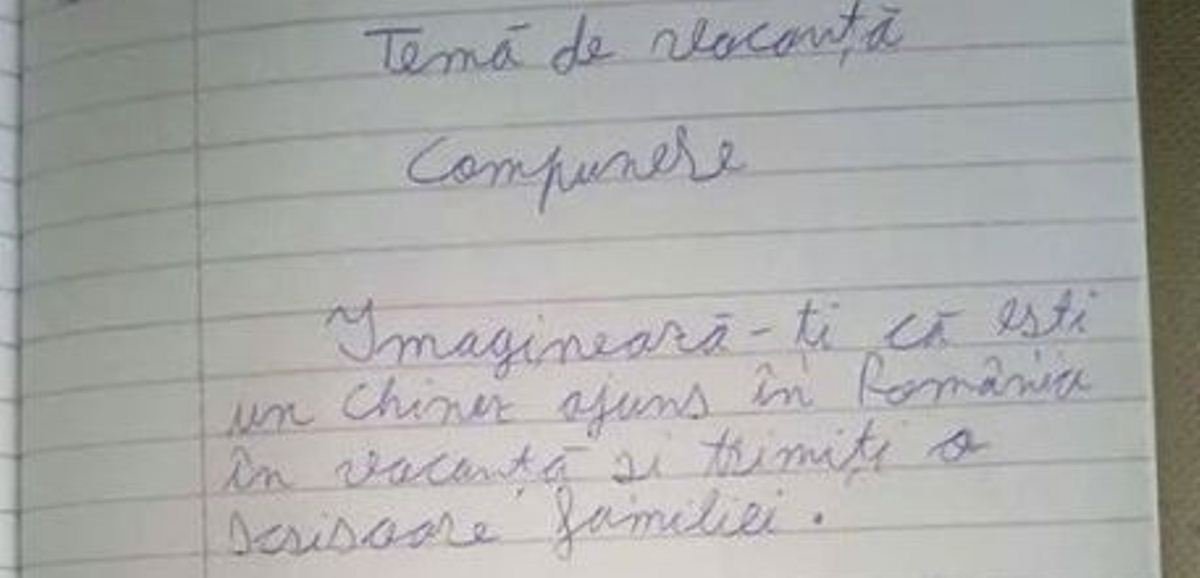 Temă de vacanță
Compunere
Imaginează-ți că ești
un chinez ajuns în România
în vacanță și trimiți o
scrisoare familiei.